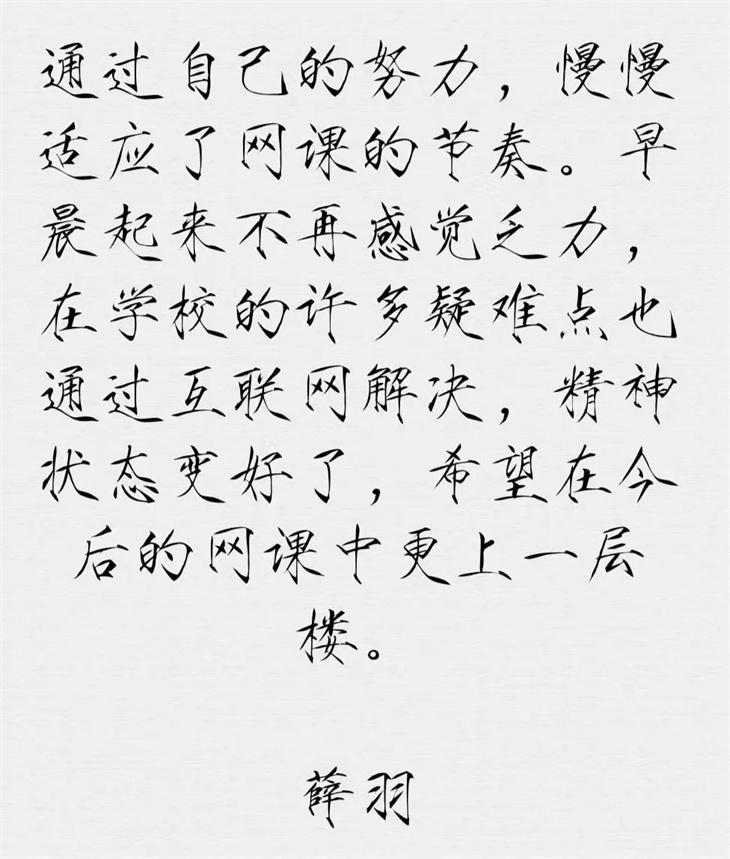 通过自己的努力，慢慢
适应了网课的节奏。早
晨起来不再感觉乏力，
在学校的许多疑难点也
通过互联网解决，精神
状态变好了，希望在今
后的网课中更上一层
楼。
薛羽